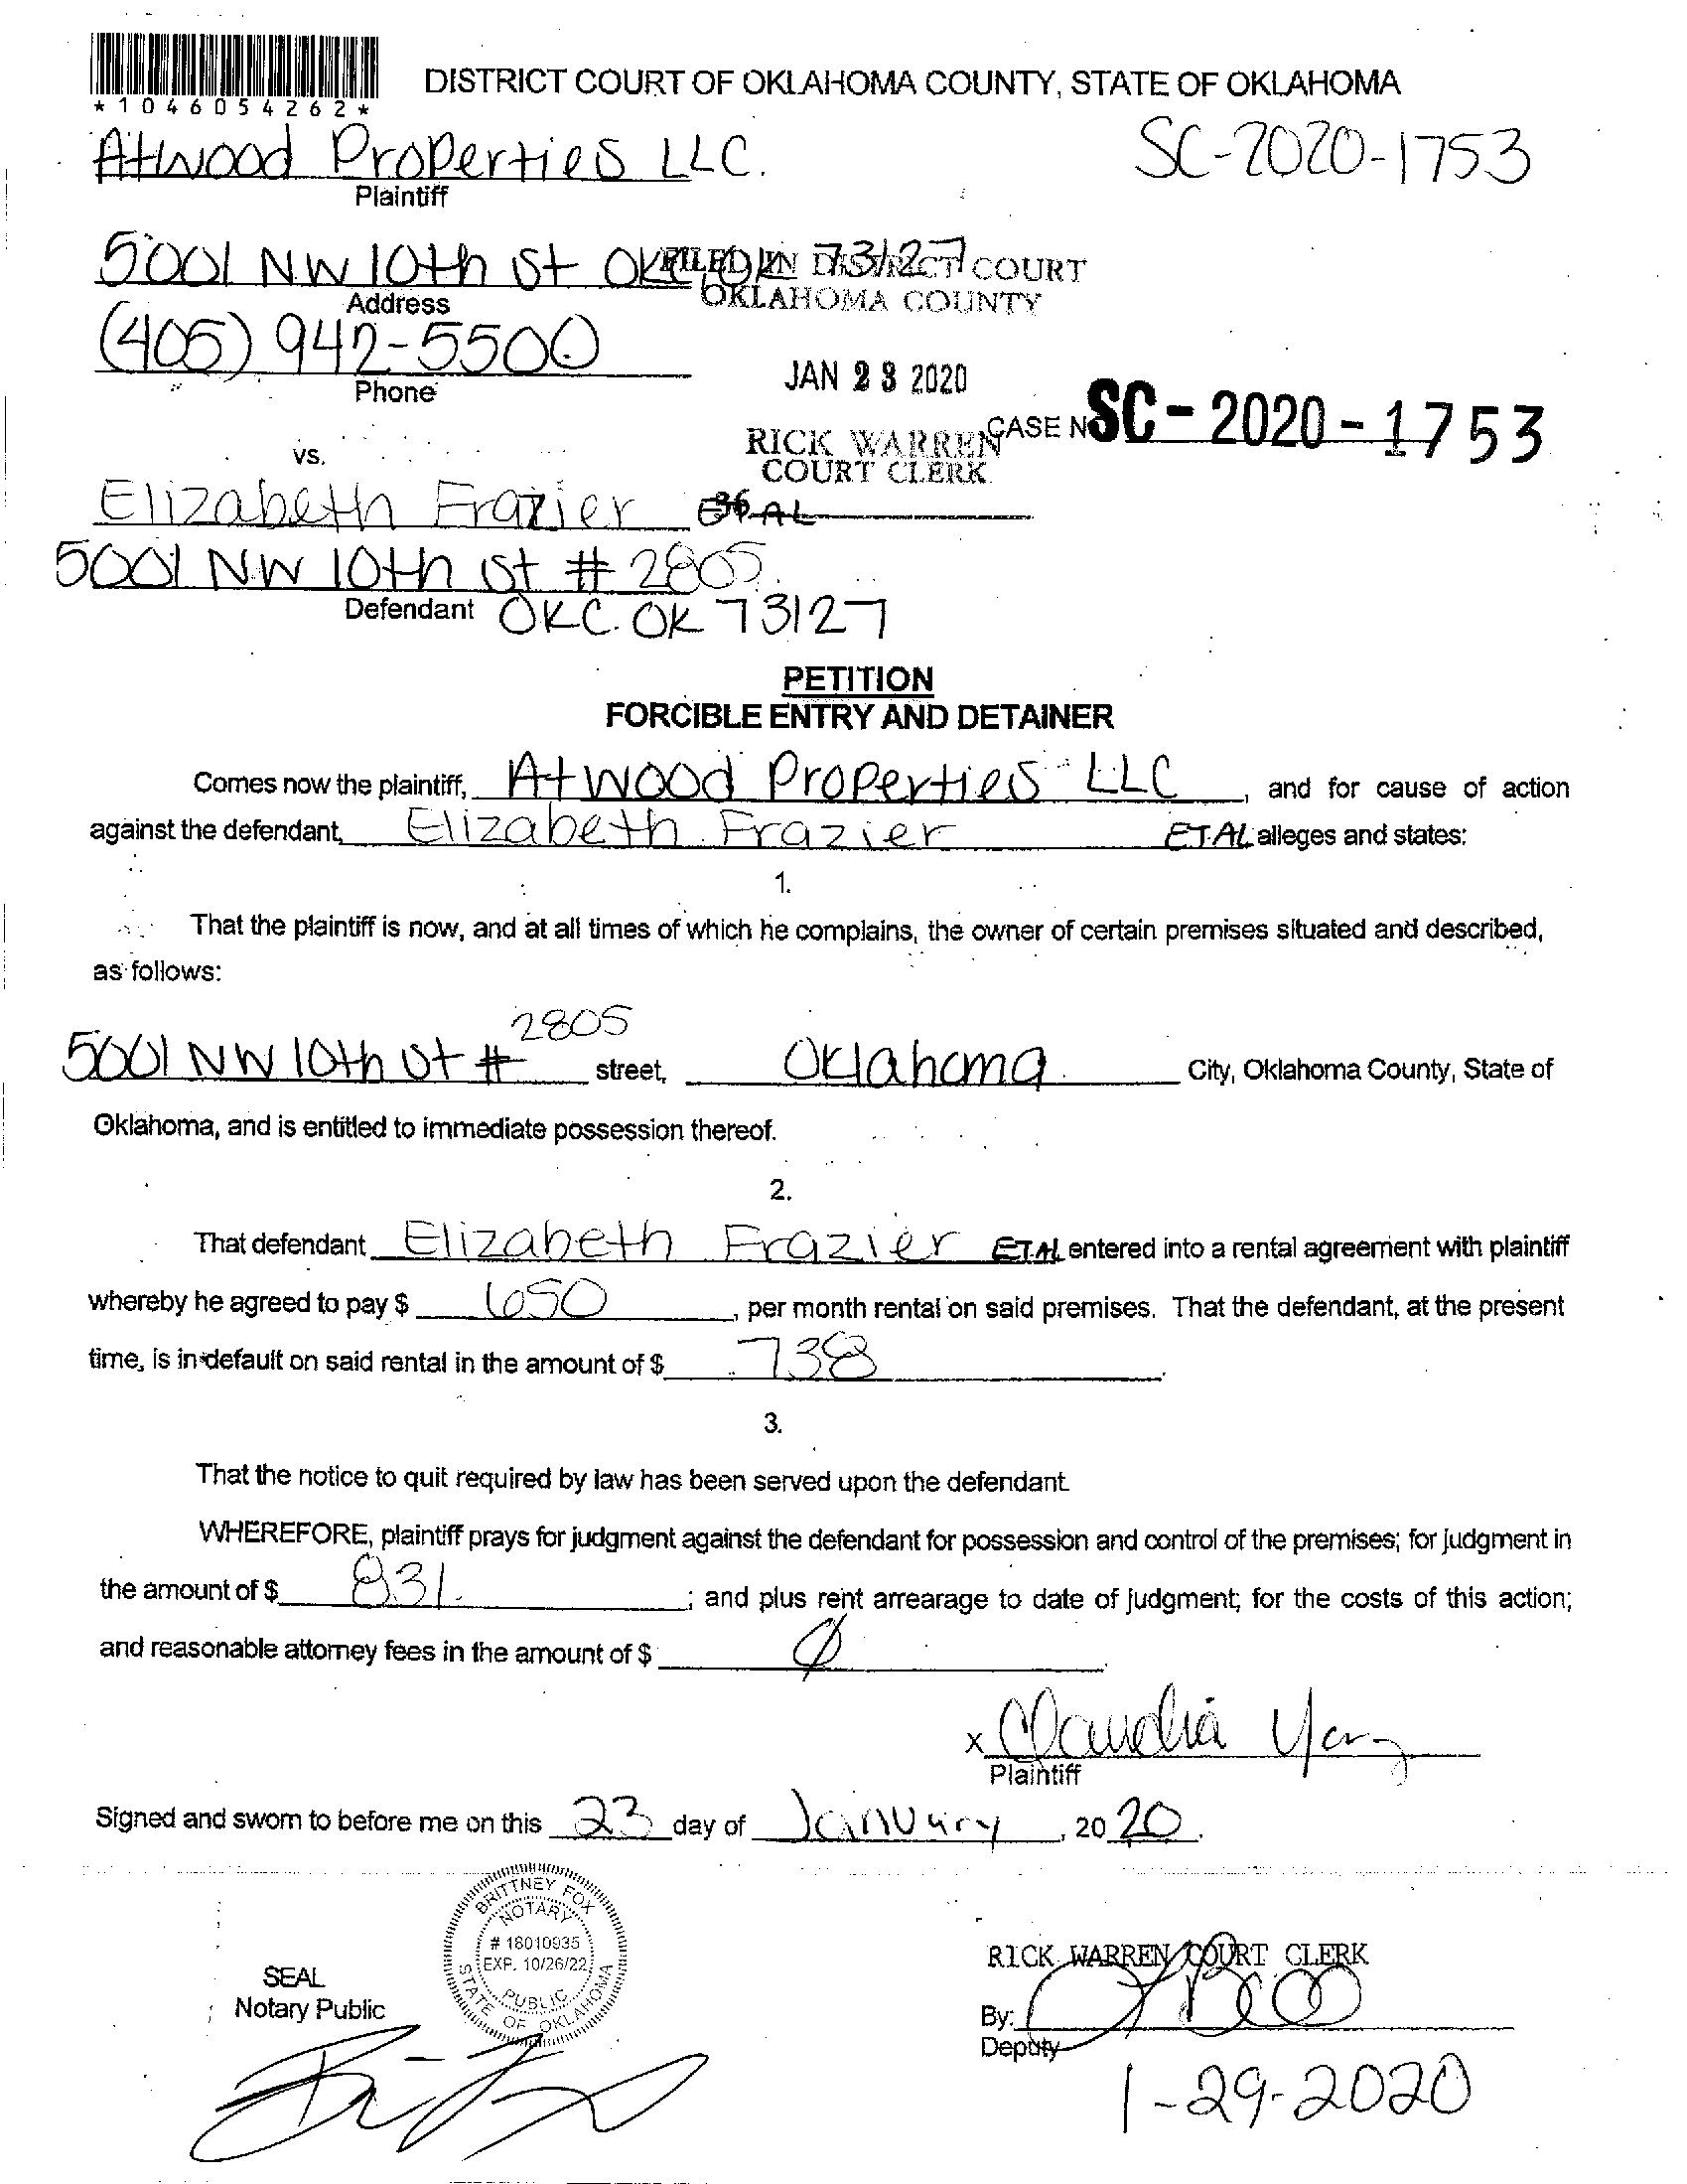 *1046054262*
DISTRICT COURT OF OKLAHOMA COUNTY, STATE OF OKLAHOMA
Atwood Properties LLC.
SC-2020-1753
Plaintiff
5001 NW 10th St OKC, OK 73127
FILED IN DISTRICT COURT
OKLAHOMA COUNTY
Address
(405) 942-5500
Phone
JAN 23 2020
RICK WARREN
COURT CLERK
CASE N SC-2020-1753
vs.
Elizabeth Frazier ET AL
5001 NW 10th St # 2805
Defendant OKC. OK 73127
PETITION
FORCIBLE ENTRY AND DETAINER
Comes now the plaintiff, Atwood Properties LLC, and for cause of action
against the defendant, Elizabeth Frazier ET.AL alleges and states:
1.
That the plaintiff is now, and at all times of which he complains, the owner of certain premises situated and described,
as follows:
5001 NW 10th St # 2805 street, Oklahoma City, Oklahoma County, State of
Oklahoma, and is entitled to immediate possession thereof.
2.
That defendant Elizabeth Frazier ET.AL entered into a rental agreement with plaintiff
whereby he agreed to pay $ 650, per month rental on said premises. That the defendant, at the present
time, is in default on said rental in the amount of $ 738.
3.
That the notice to quit required by law has been served upon the defendant.
WHEREFORE, plaintiff prays for judgment against the defendant for possession and control of the premises; for judgment in
the amount of $ 831.; and plus rent arrearage to date of judgment; for the costs of this action;
and reasonable attorney fees in the amount of $ Ø.
x Claudia
Plaintiff
Signed and sworn to before me on this 23 day of January, 2020.
BRITTNEY FOX
NOTARY
# 18010935
EXP. 10/26/22
PUBLIC
STATE OF OKLAHOMA
SEAL
Notary Public
RICK WARREN COURT CLERK
By:
Deputy
1-29-2020